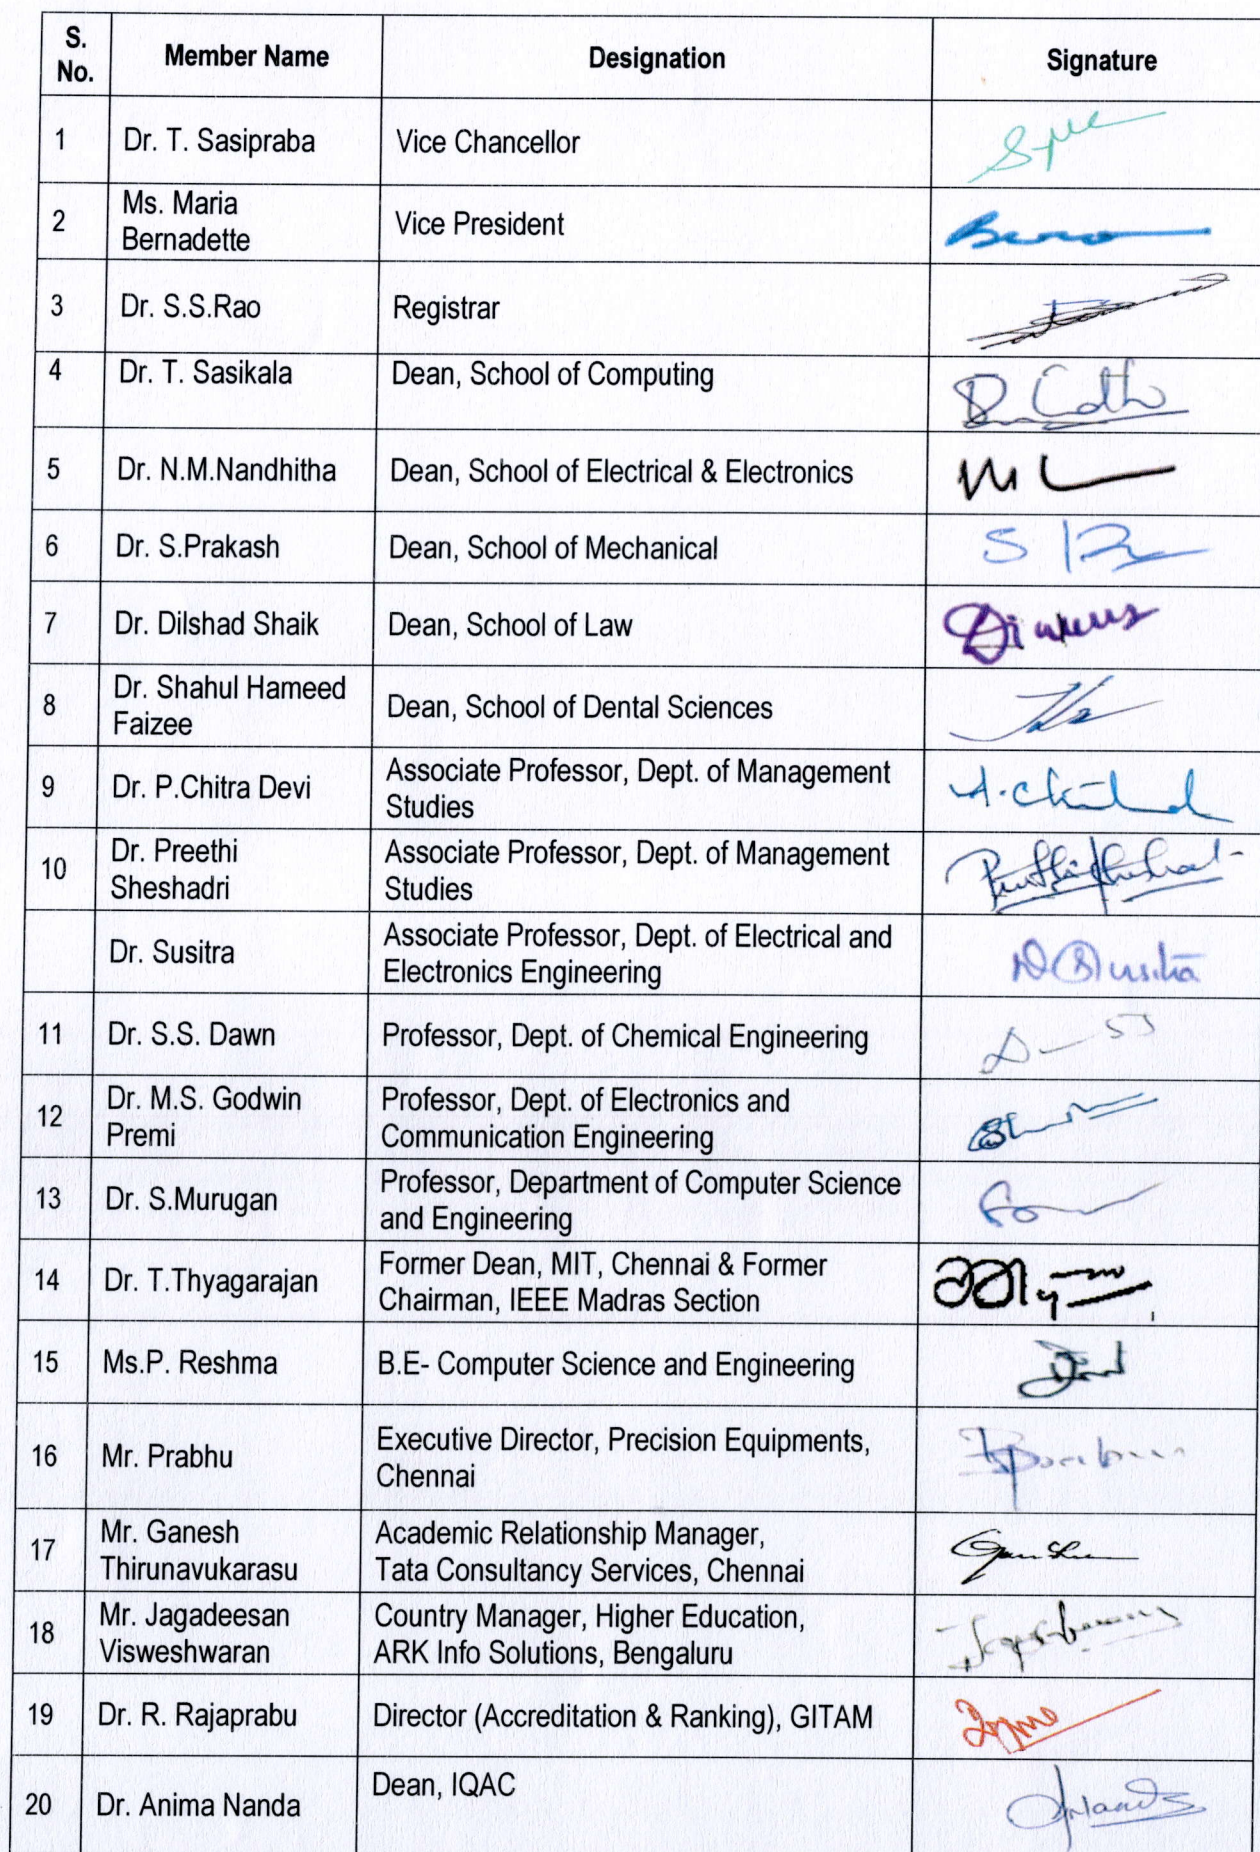 S. No. Member Name Designation Signature
1 Dr. T. Sasipraba Vice Chancellor
2 Ms. Maria Bernadette Vice President
3 Dr. S.S.Rao Registrar
4 Dr. T. Sasikala Dean, School of Computing
5 Dr. N.M.Nandhitha Dean, School of Electrical & Electronics
6 Dr. S.Prakash Dean, School of Mechanical
7 Dr. Dilshad Shaik Dean, School of Law
8 Dr. Shahul Hameed Faizee Dean, School of Dental Sciences
9 Dr. P.Chitra Devi Associate Professor, Dept. of Management Studies
10 Dr. Preethi Sheshadri Associate Professor, Dept. of Management Studies
Dr. Susitra Associate Professor, Dept. of Electrical and Electronics Engineering
11 Dr. S.S. Dawn Professor, Dept. of Chemical Engineering
12 Dr. M.S. Godwin Premi Professor, Dept. of Electronics and Communication Engineering
13 Dr. S.Murugan Professor, Department of Computer Science and Engineering
14 Dr. T.Thyagarajan Former Dean, MIT, Chennai & Former Chairman, IEEE Madras Section
15 Ms.P. Reshma B.E- Computer Science and Engineering
16 Mr. Prabhu Executive Director, Precision Equipments, Chennai
17 Mr. Ganesh Thirunavukarasu Academic Relationship Manager, Tata Consultancy Services, Chennai
18 Mr. Jagadeesan Visweshwaran Country Manager, Higher Education, ARK Info Solutions, Bengaluru
19 Dr. R. Rajaprabu Director (Accreditation & Ranking), GITAM
20 Dr. Anima Nanda Dean, IQAC